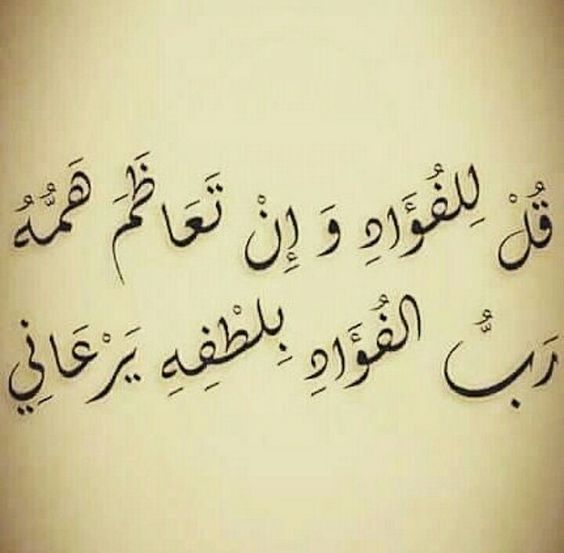 قُلْ لِلفُؤَادِ وَ إِنْ تَعَاظَمَ هَمُّهُ
رَبُّ الفُؤَادِ بِلُطْفِهِ يَرْعَانِي